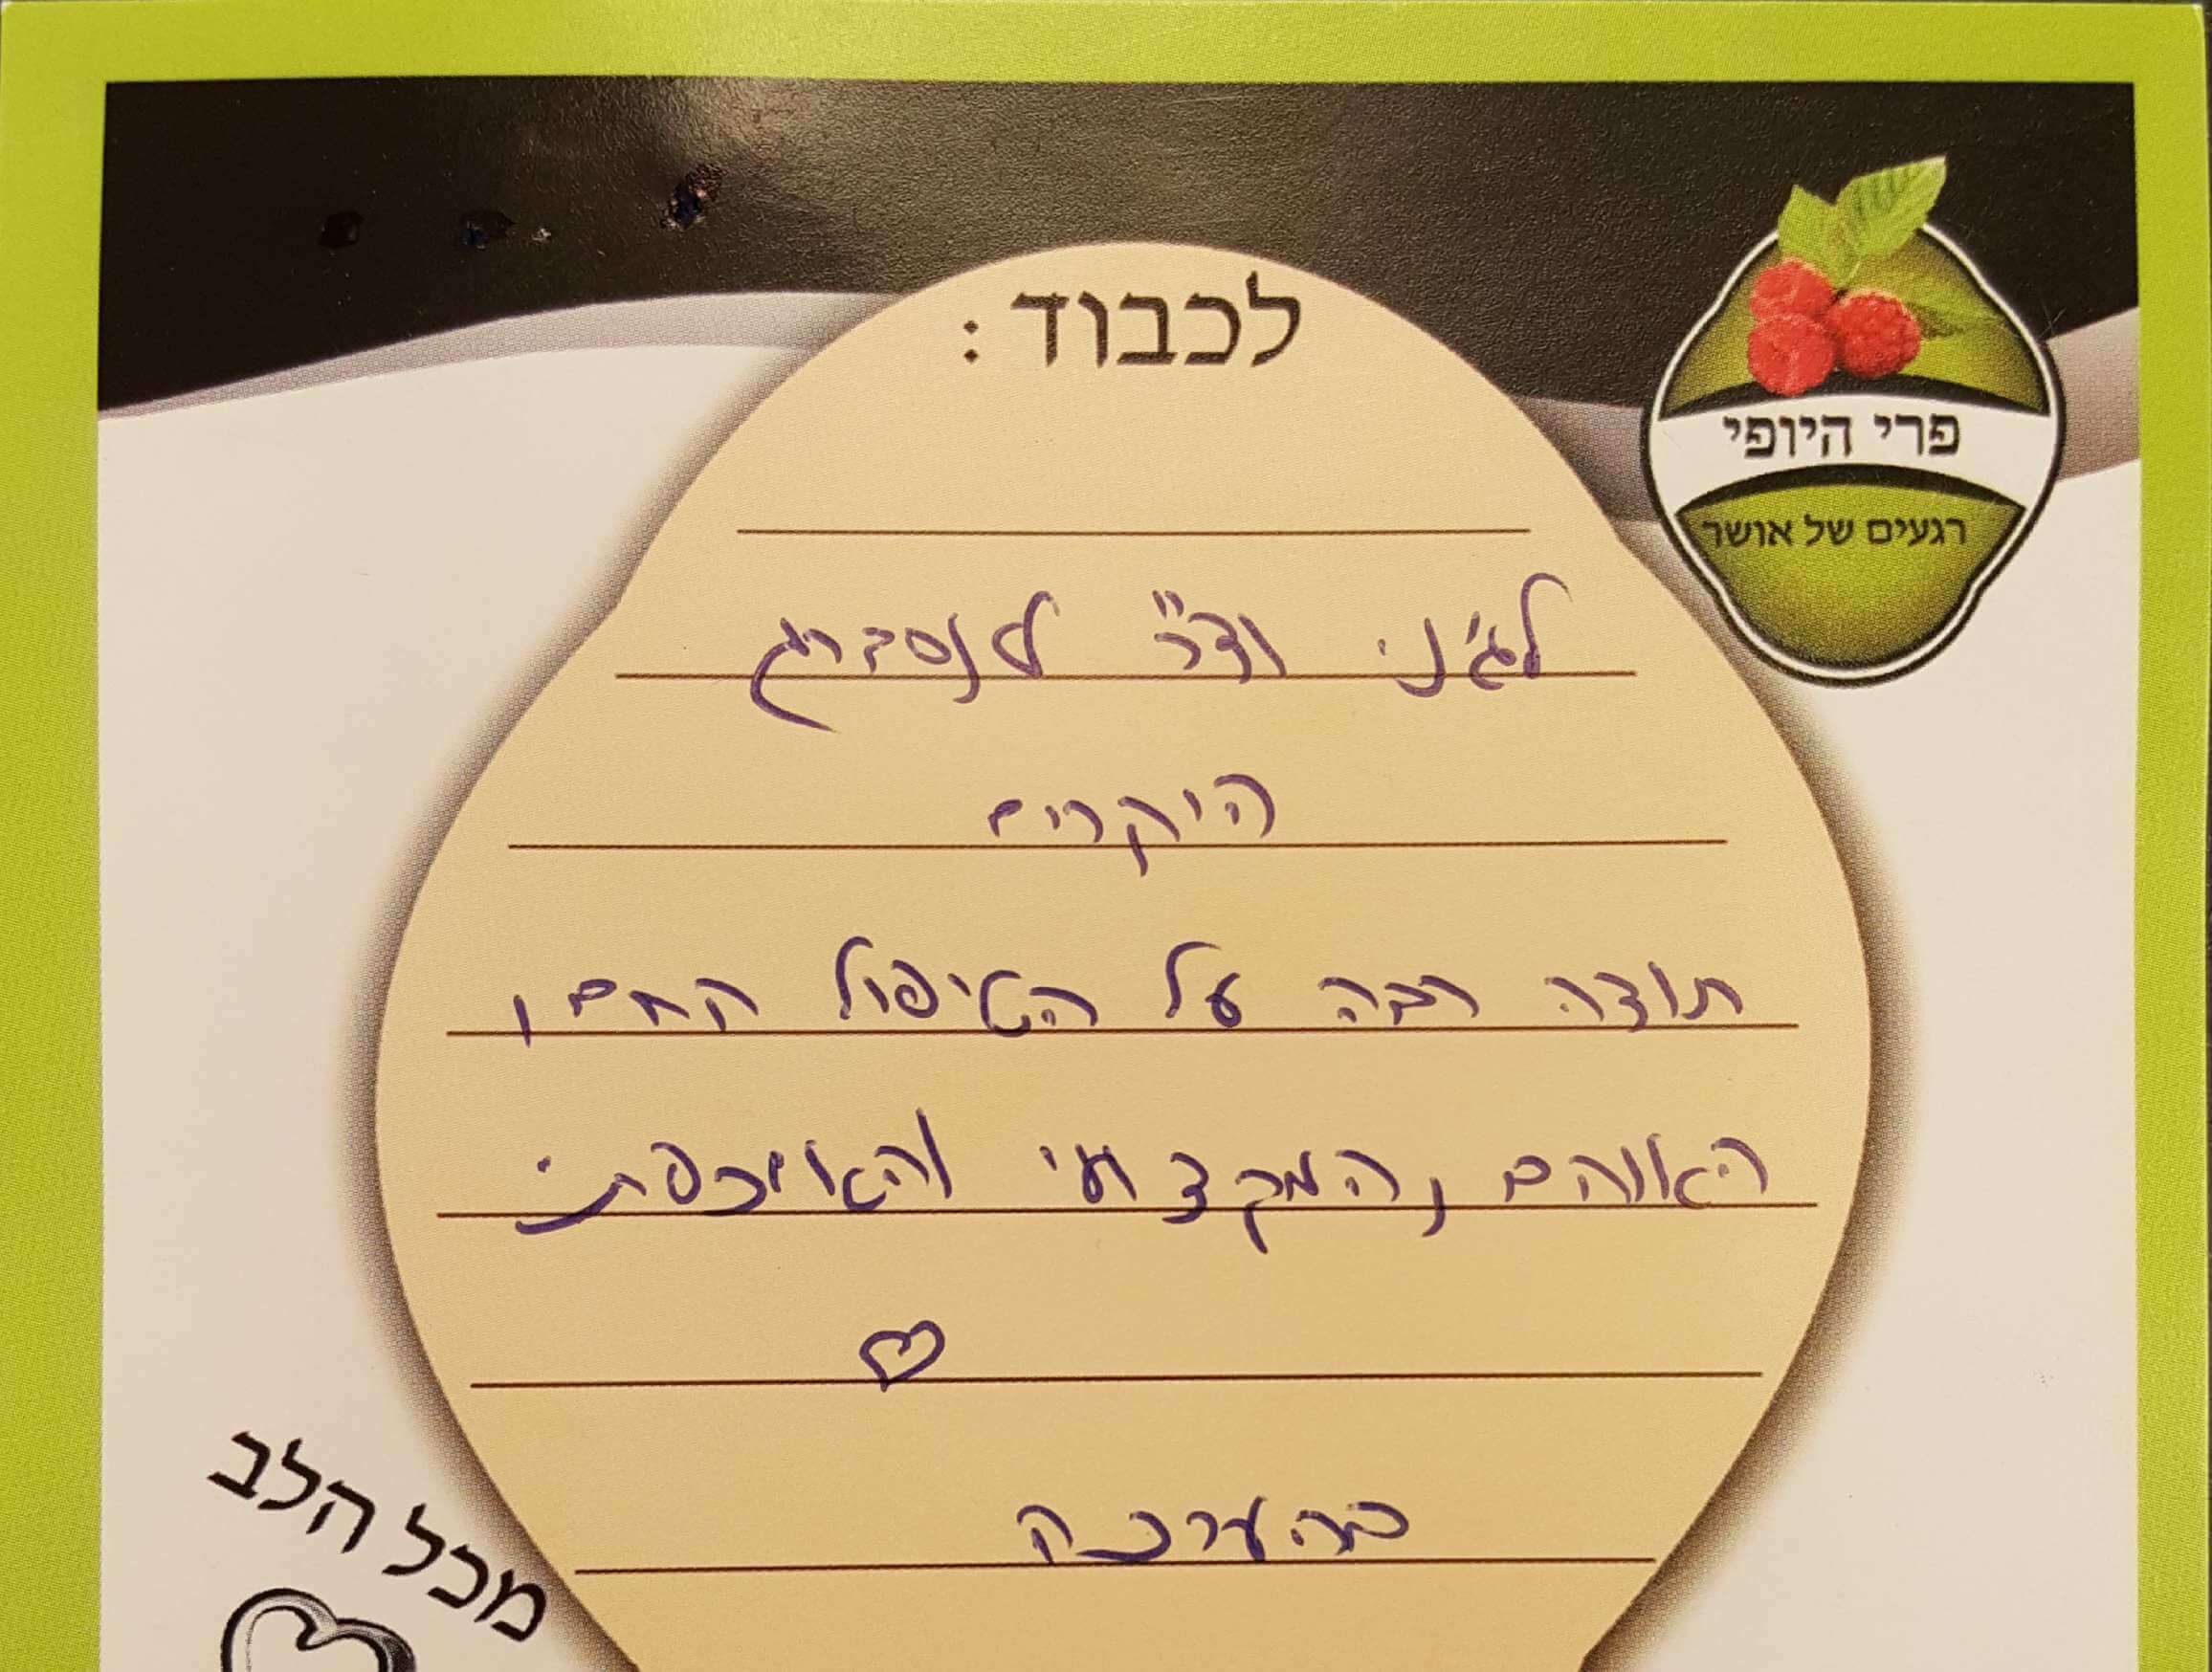 לכבוד :
פרי היופי
רגעים של אושר
לג'ני וד"ר לנסברג
היקרים
תודה רבה על הטיפול החם,
האוהב, המקצועי והאיכפתי
בהערכה
מכל הלב